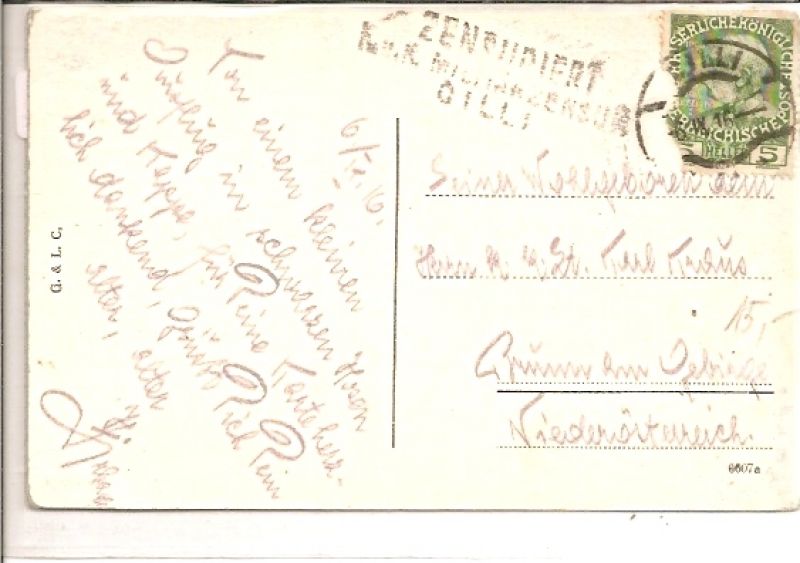 ZENSURIERT
K.u.K. MILITÄRZENSUR
CILLI
KAISERLICHE KÖNIGLICHE
ÖSTERREICHISCHE POST
5 HELLER 5
CILLI
6/IV. 16.
Von einem kleinen
Ausflug in schwarzen Hosen
und Kappe, für Deine Karte herz-
lich dankend, grüßt Dich Dein
alter, alter
G. & L. C.
Seiner Wohlgeboren dem
Herrn K. K. Karl Kraus
15,-
Brunn am Gebirge
Niederösterreich.
6607a